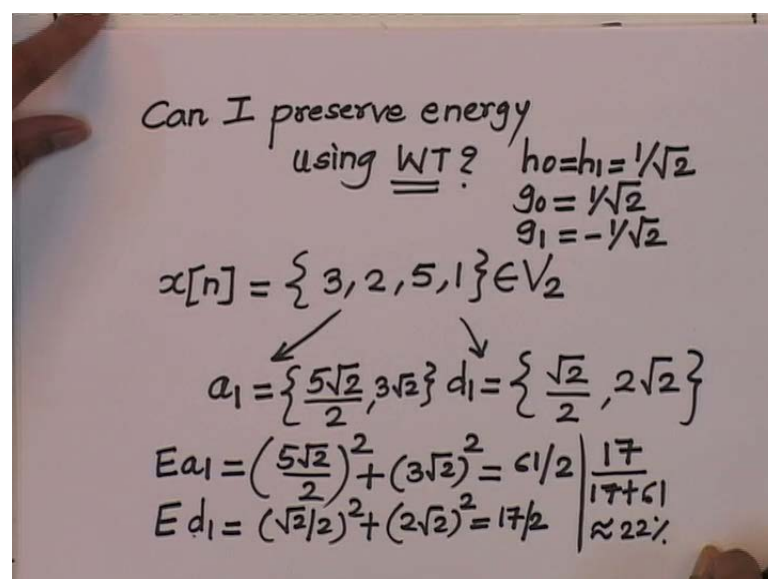 Can I preserve energy
using WT? h0=h1=1/√2
g0=1/√2
g1=-1/√2
x[n]={3,2,5,1}∈V2
a1={5√2/2,3√2} d1={√2/2,2√2}
Ea1=(5√2/2)²+(3√2)²=61/2 | 17/(17+61)
Ed1=(√2/2)²+(2√2)²=17/2 | ≈22%